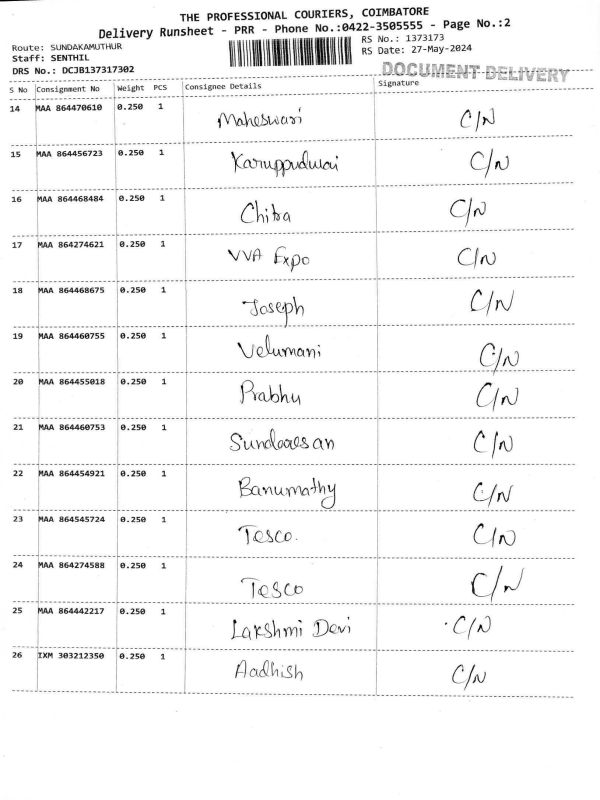 THE PROFESSIONAL COURIERS, COIMBATORE
Delivery Runsheet - PRR - Phone No.:0422-3505555 - Page No.:2
Route: SUNDAKAMUTHUR RS No.: 1373173
Staff: SENTHIL RS Date: 27-May-2024
DRS No.: DCJB137317302 DOCUMENT DELIVERY
S No Consignment No Weight PCS Consignee Details Signature
14 MAA 864470610 0.250 1 Maheswari C/N
15 MAA 864456723 0.250 1 Karuppudurai C/N
16 MAA 864468484 0.250 1 Chitra C/N
17 MAA 864274621 0.250 1 VVA Expo C/N
18 MAA 864468675 0.250 1 Joseph C/N
19 MAA 864460755 0.250 1 Velumani C/N
20 MAA 864455018 0.250 1 Prabhu C/N
21 MAA 864460753 0.250 1 C/N
22 MAA 864454921 0.250 1 Banumathy C/N
23 MAA 864545724 0.250 1 Tesco. C/N
24 MAA 864274588 0.250 1 Tesco C/N
25 MAA 864442217 0.250 1 Lakshmi Devi C/N
26 IXM 303212350 0.250 1 Aadhish C/N